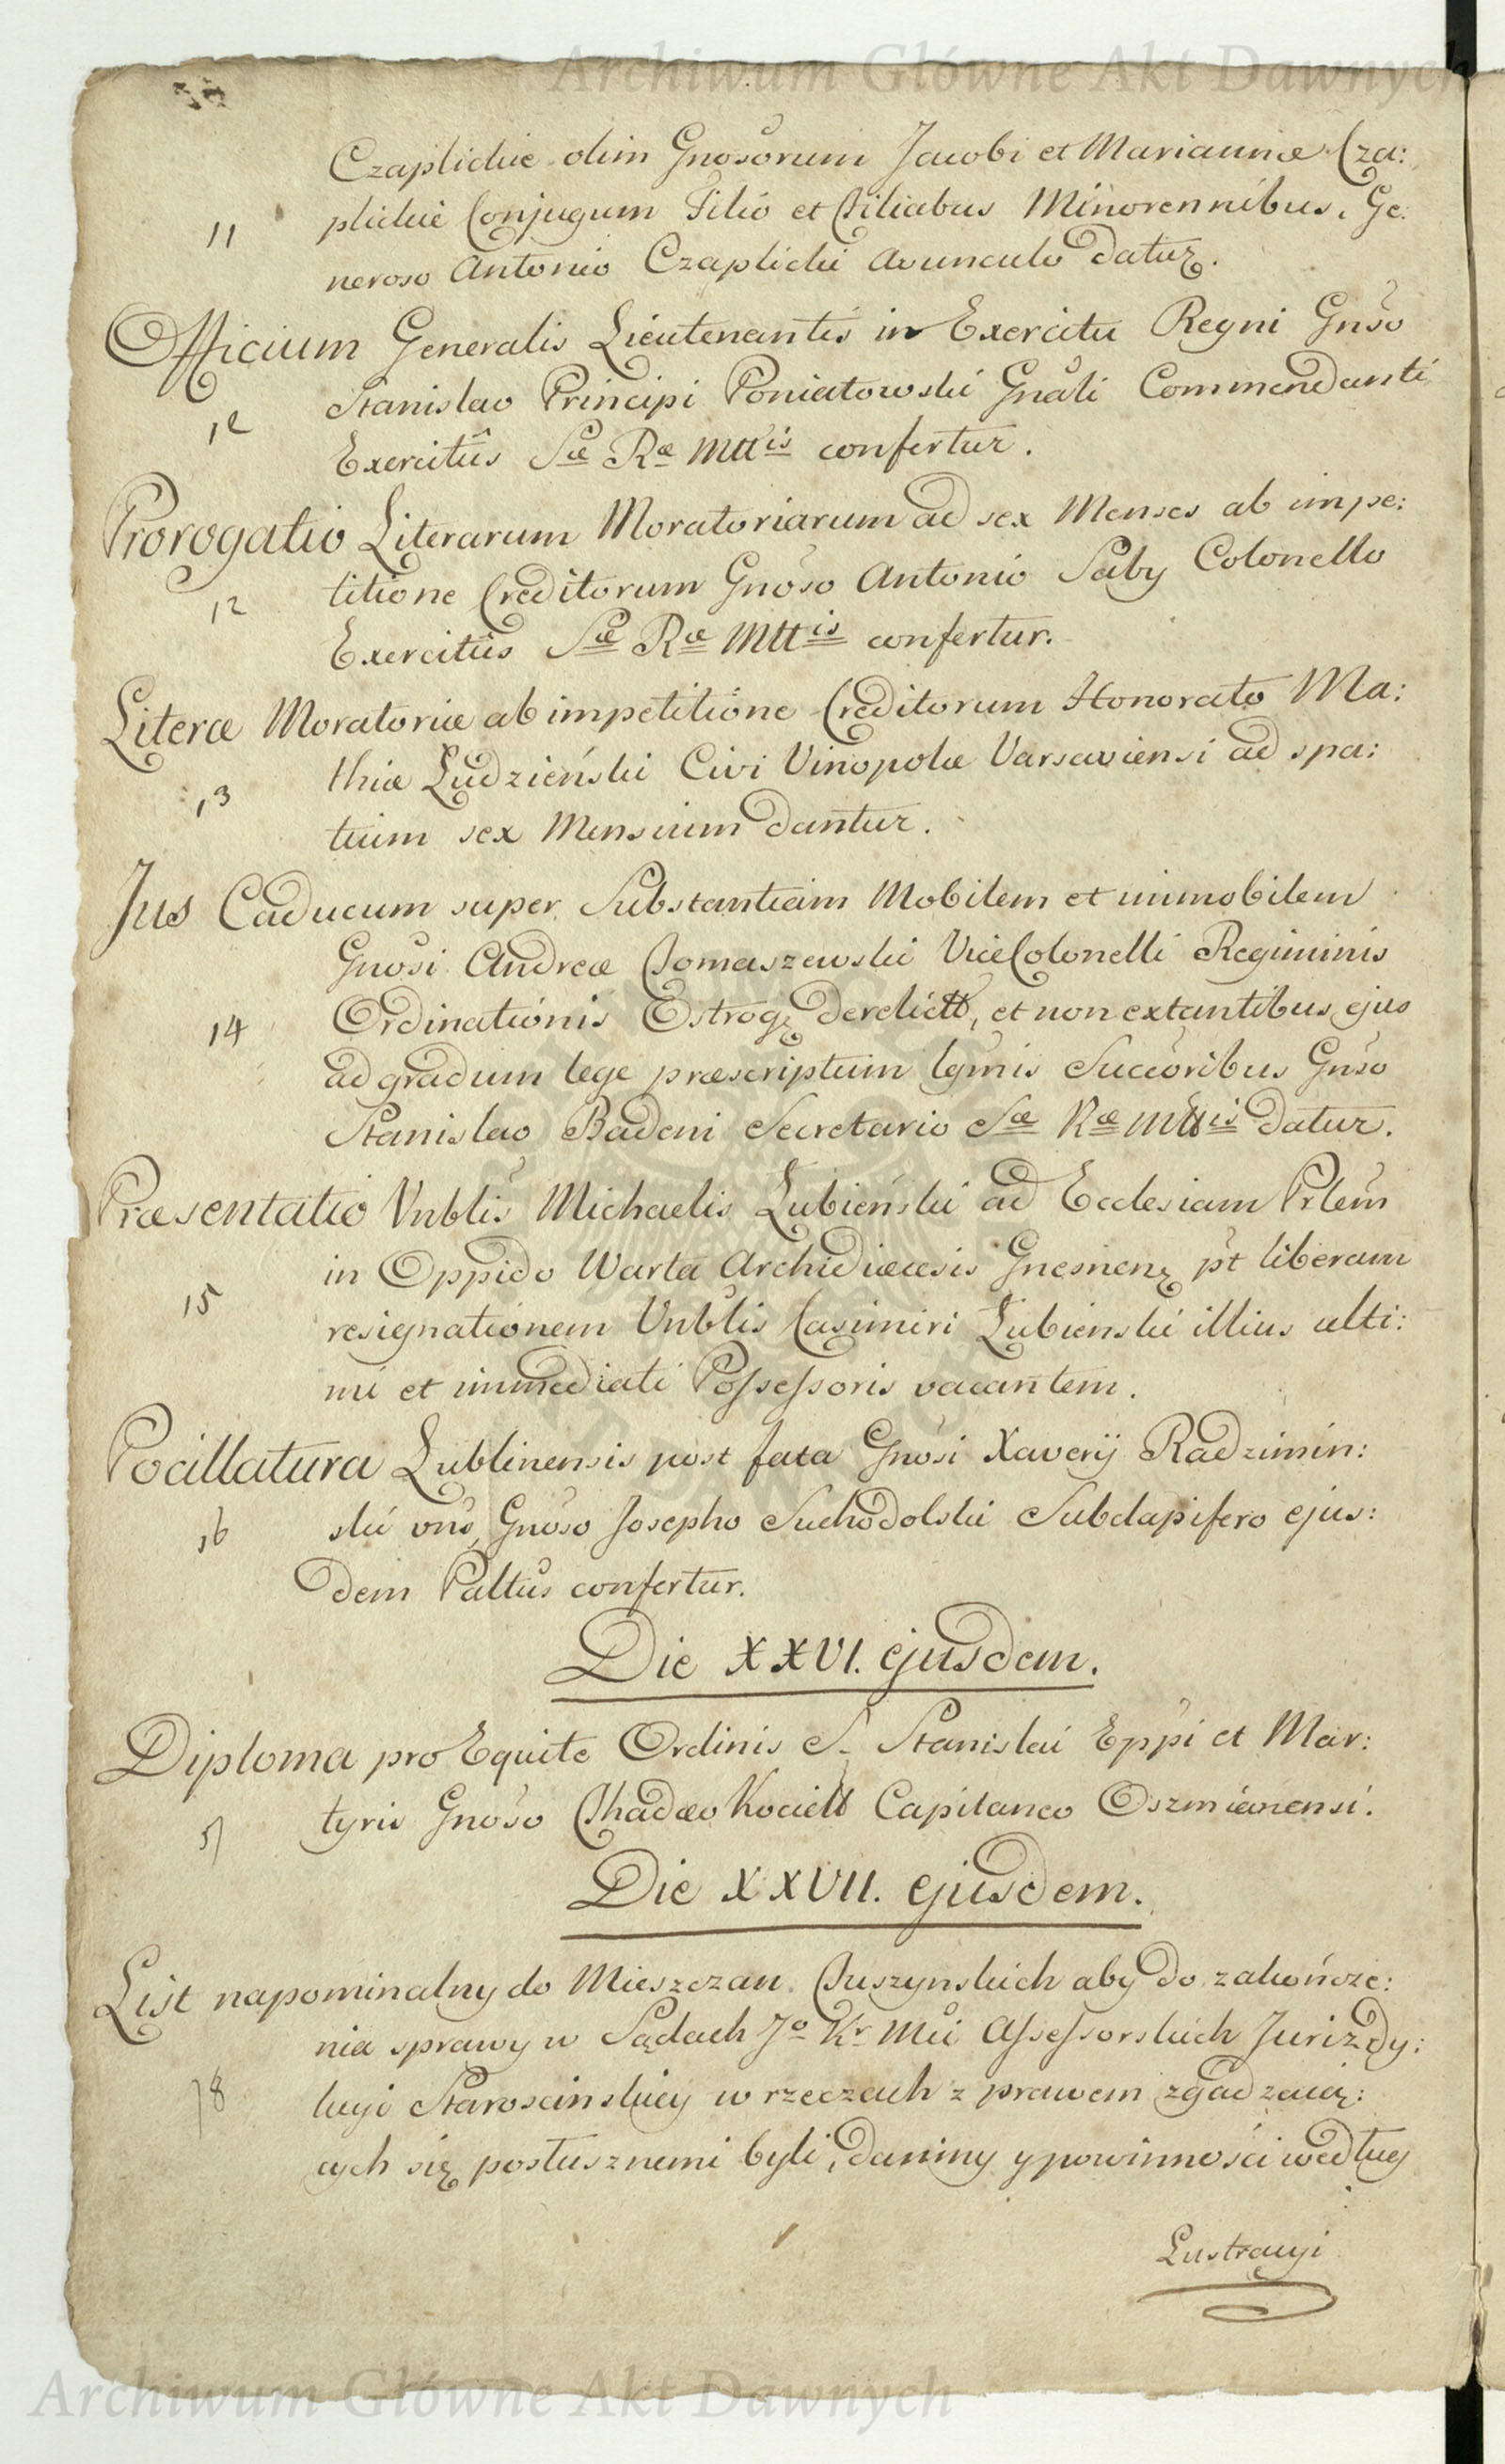 Archiwum Główne Akt Dawnych
Czaplickie olim Gnosorum Jacobi et Mariannæ Cza:
11 plickie Conjugum Filio et Filiabus Minorennibus, Ge:
neroso Antonio Czaplicki Avunculo datur.
Officium Generalis Lieutenantis in Exercitu Regni Gnso
12 Stanislao Principi Poniatowski Gnali Commendanti
Exercitûs Sæ Ræ Mttis confertur.
Prorogatio Literarum Moratoriarum ad sex Menses ab impe:
12 titione Creditorum Gnoso Antonio Saby Colonello
Exercitûs Sæ Ræ Mttis confertur.
Literæ Moratoriæ ab impetitione Creditorum Honorato Ma:
13 thiæ Ludzieński Civi Vinopolæ Varsaviensi ad spa:
tium sex Mensium dantur.
Jus Caducum super Substantiam Mobilem et immobilem
Gnosi Andreæ Tomaszewski ViceColonelli Regiminis
14 Ordinationis Ostrog. derelictt, et non extantibus ejus
ad gradum lege præscriptum lgmis Succoribus Gnso
Stanislao Badeni Secretario Sæ Ræ Mttis datur.
Præsentatio Vnblis Michaelis Łubieński ad Ecclesiam Prlem
15 in Oppido Warta Archidiæcesis Gnesnen. pt liberam
resignationem Vnblis Casimiri Łubienski illius ulti:
mi et immediati Possessoris vacantem.
Pocillatura Lublinensis post fata Gnosi Xaverÿ Radzimin:
16 ski vns, Gnoso Josepho Suchodolski Subdapifero ejus:
dem Pallus confertur.
Die XXVI. ejusdem.
Diploma pro Equite Ordinis S. Stanislai Eppi et Mar:
tyris Gnoso Thadæo Kociełł Capitaneo Oszmianensi.
Die XXVII. ejusdem.
List napominalny do Mieszczan Tuszynskich aby do zakończe:
nia sprawy w Sądach Jo Kr Mci Assessorskich Jurizdy:
18 kcyi Staroscinskiey w rzeczach z prawem zgadzaią:
cych się posłusznemi byli, daniny y powinności według
Lustracyi
Archiwum Główne Akt Dawnych